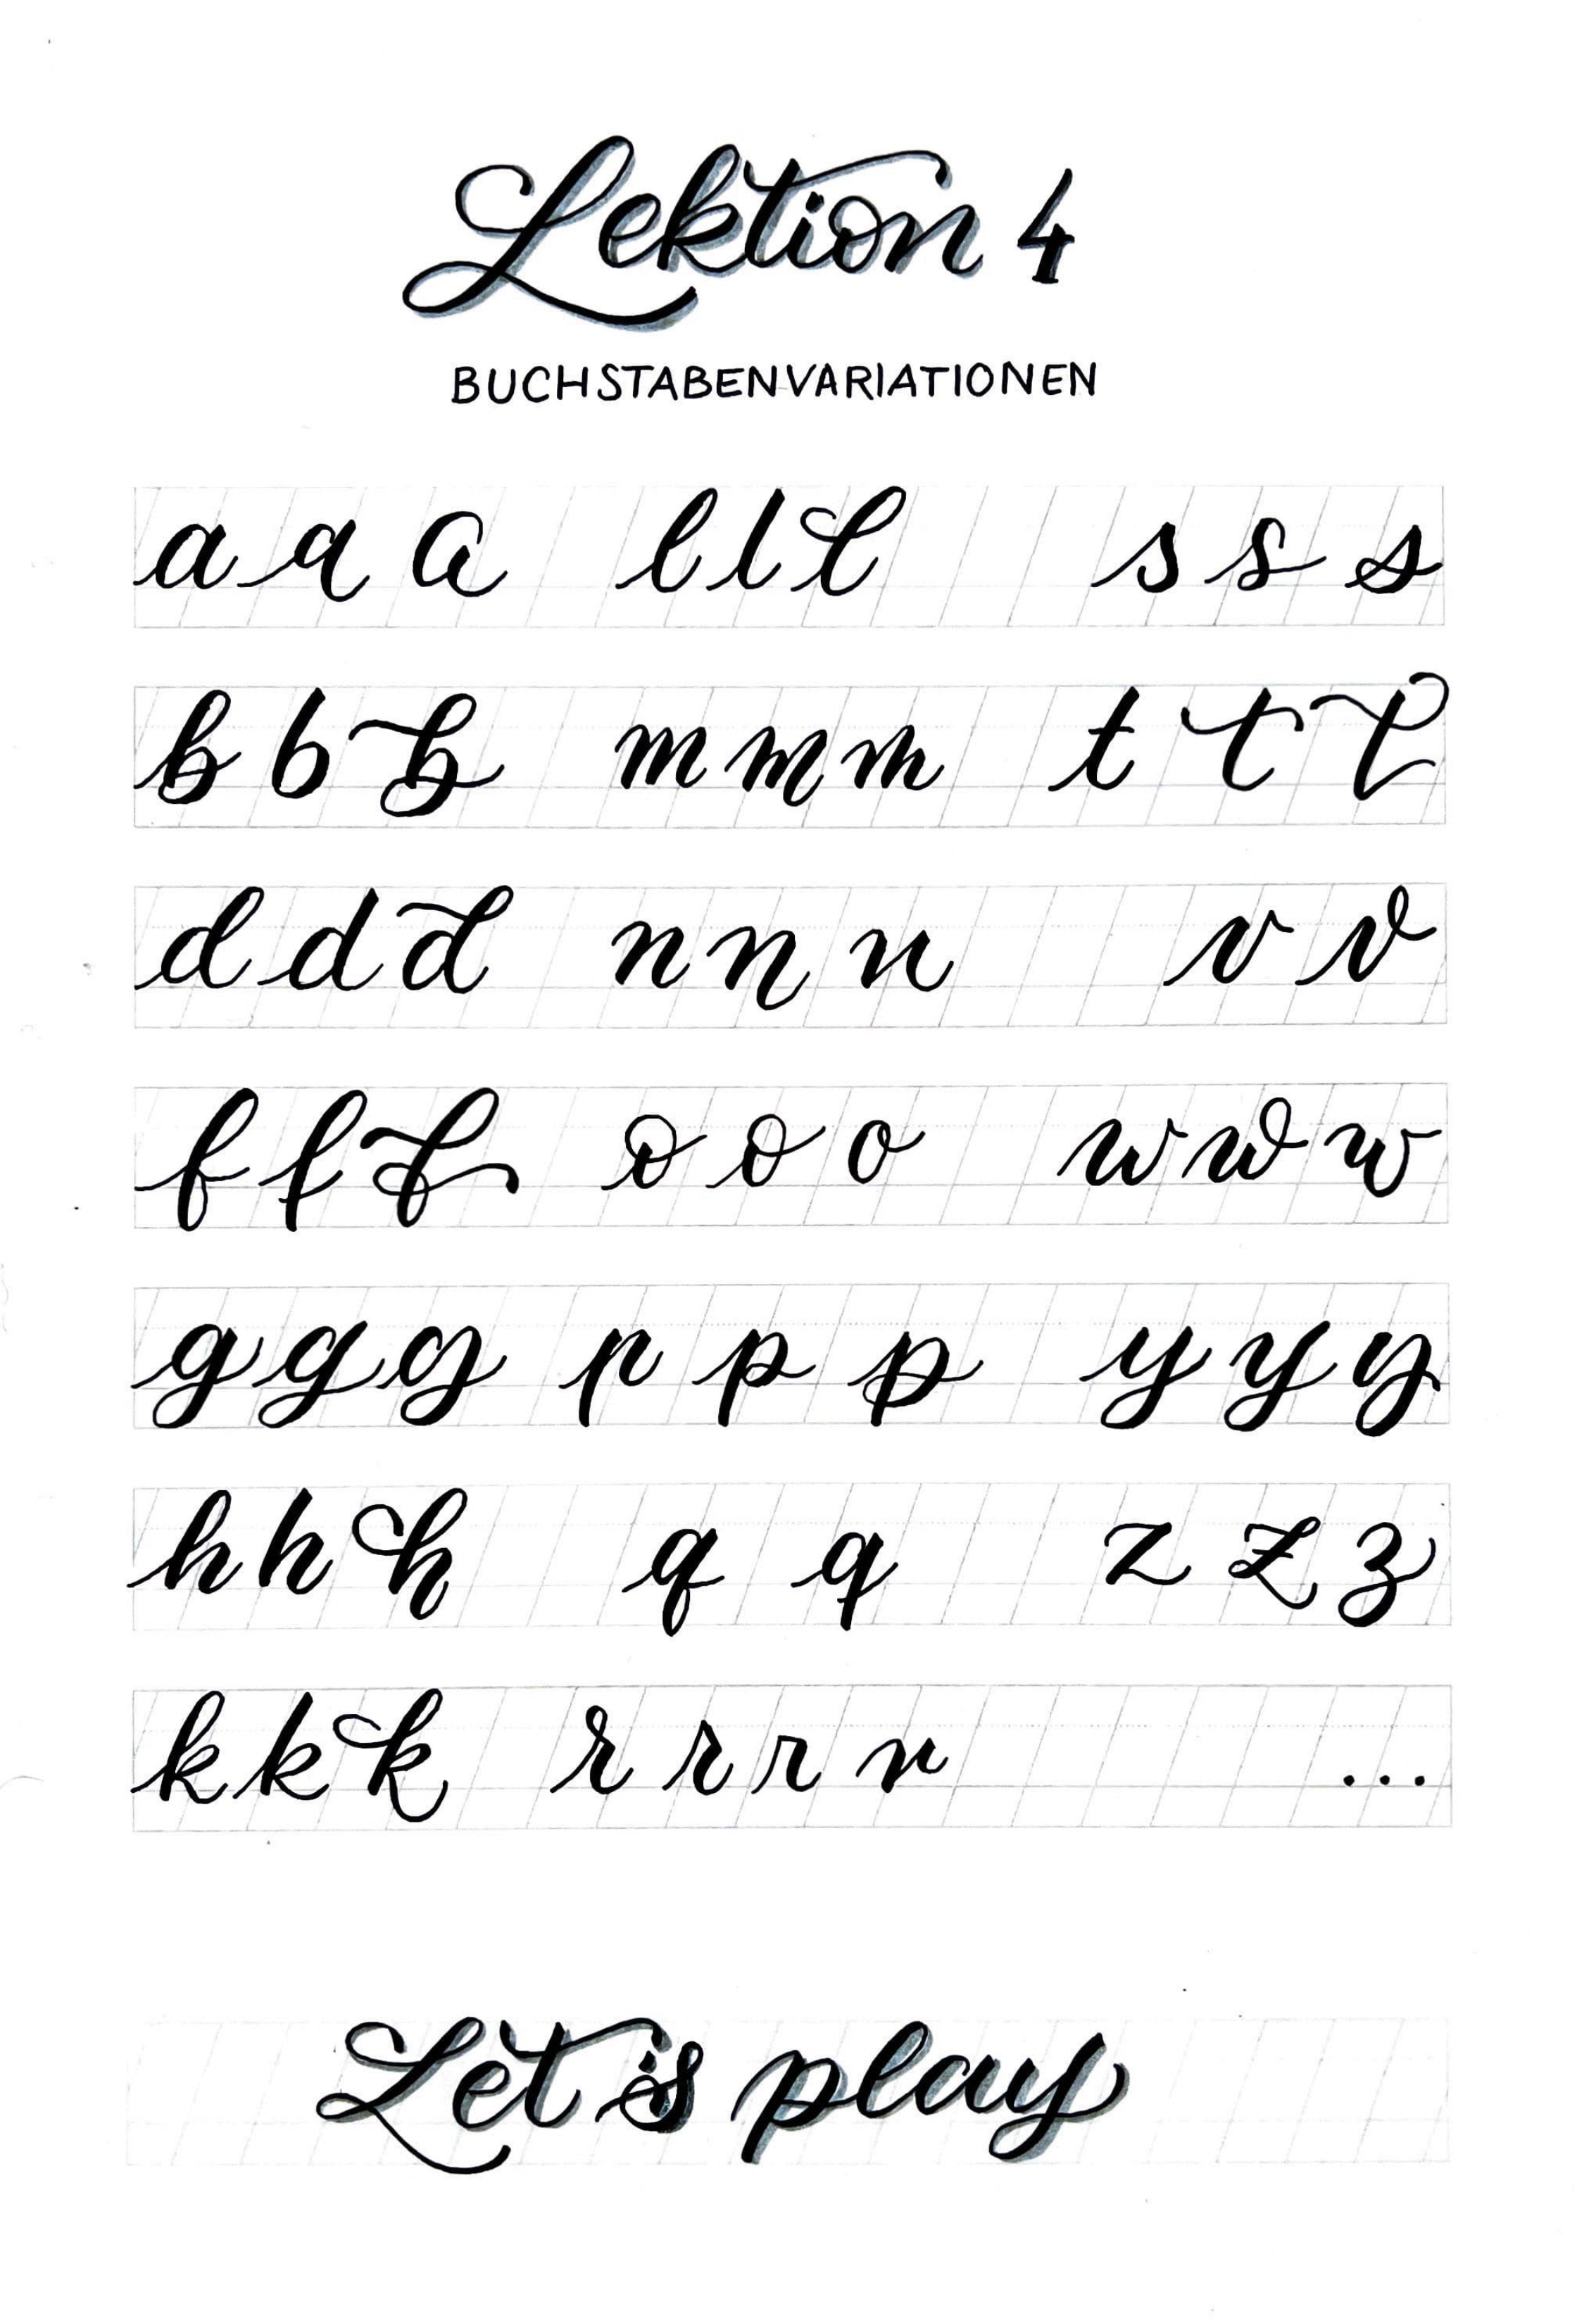 Lektion 4
BUCHSTABENVARIATIONEN
a a a l l l s s s
b b b m m m t t t
d d d n n n v v
f f f o o o w w w
g g g p p p y y y
h h h q q z z z
k k k r r r r ...
Let's play